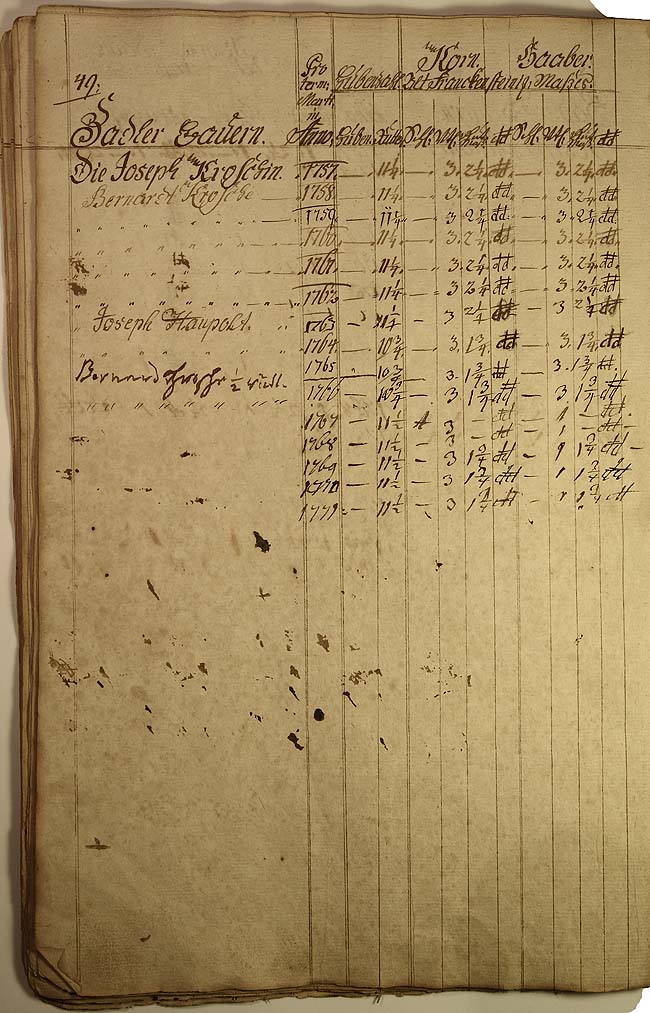 49.
Pro term: Marti ni Anno. Korn. Haaber.
Hubenzahl. Bey Francken steinis: Maßes.
Sadler Bauern. Huben. Ruth
Die Joseph Kroschin. 1757. 11¼ 3. 2¼ dd. 3. 2¼ dd.
Bernardt Krosche 1758. 11¼ 3. 2¼ dd. 3. 2¼ dd.
1759. 11¼ 3 2¼ dd. 3. 2¼ dd.
1760. 11¼ 3. 2¼ dd. 3. 2¼ dd
1761. 11¼ 3. 2¼ dd. 3. 2¼ dd.
1762 11¼ 3 2¼ dd. 3. 2¼ dd.
Joseph Haupolt. 1763 11¼ 3 2¼ dd 3 2¼ dd
1764. 10¾ 3. 1¾. dd 3. 1¾. dd
1765 10¾ 3. 1¾ dd 3. 1¾ dd.
Bernard ½ 1766 10¾ 3. 1¾ dd 3. 1¾ dd
1767 11½ 3 — dd 1 — dd.
1768 11½ 3 — dd 1 — dd
1769 11½ 3 1¾ dd 1 1¾ dd
1770 11½ 3 1¾ dd 1 1¾ dd
1771 11½ 3 1¾ dd 1 1¾ dd